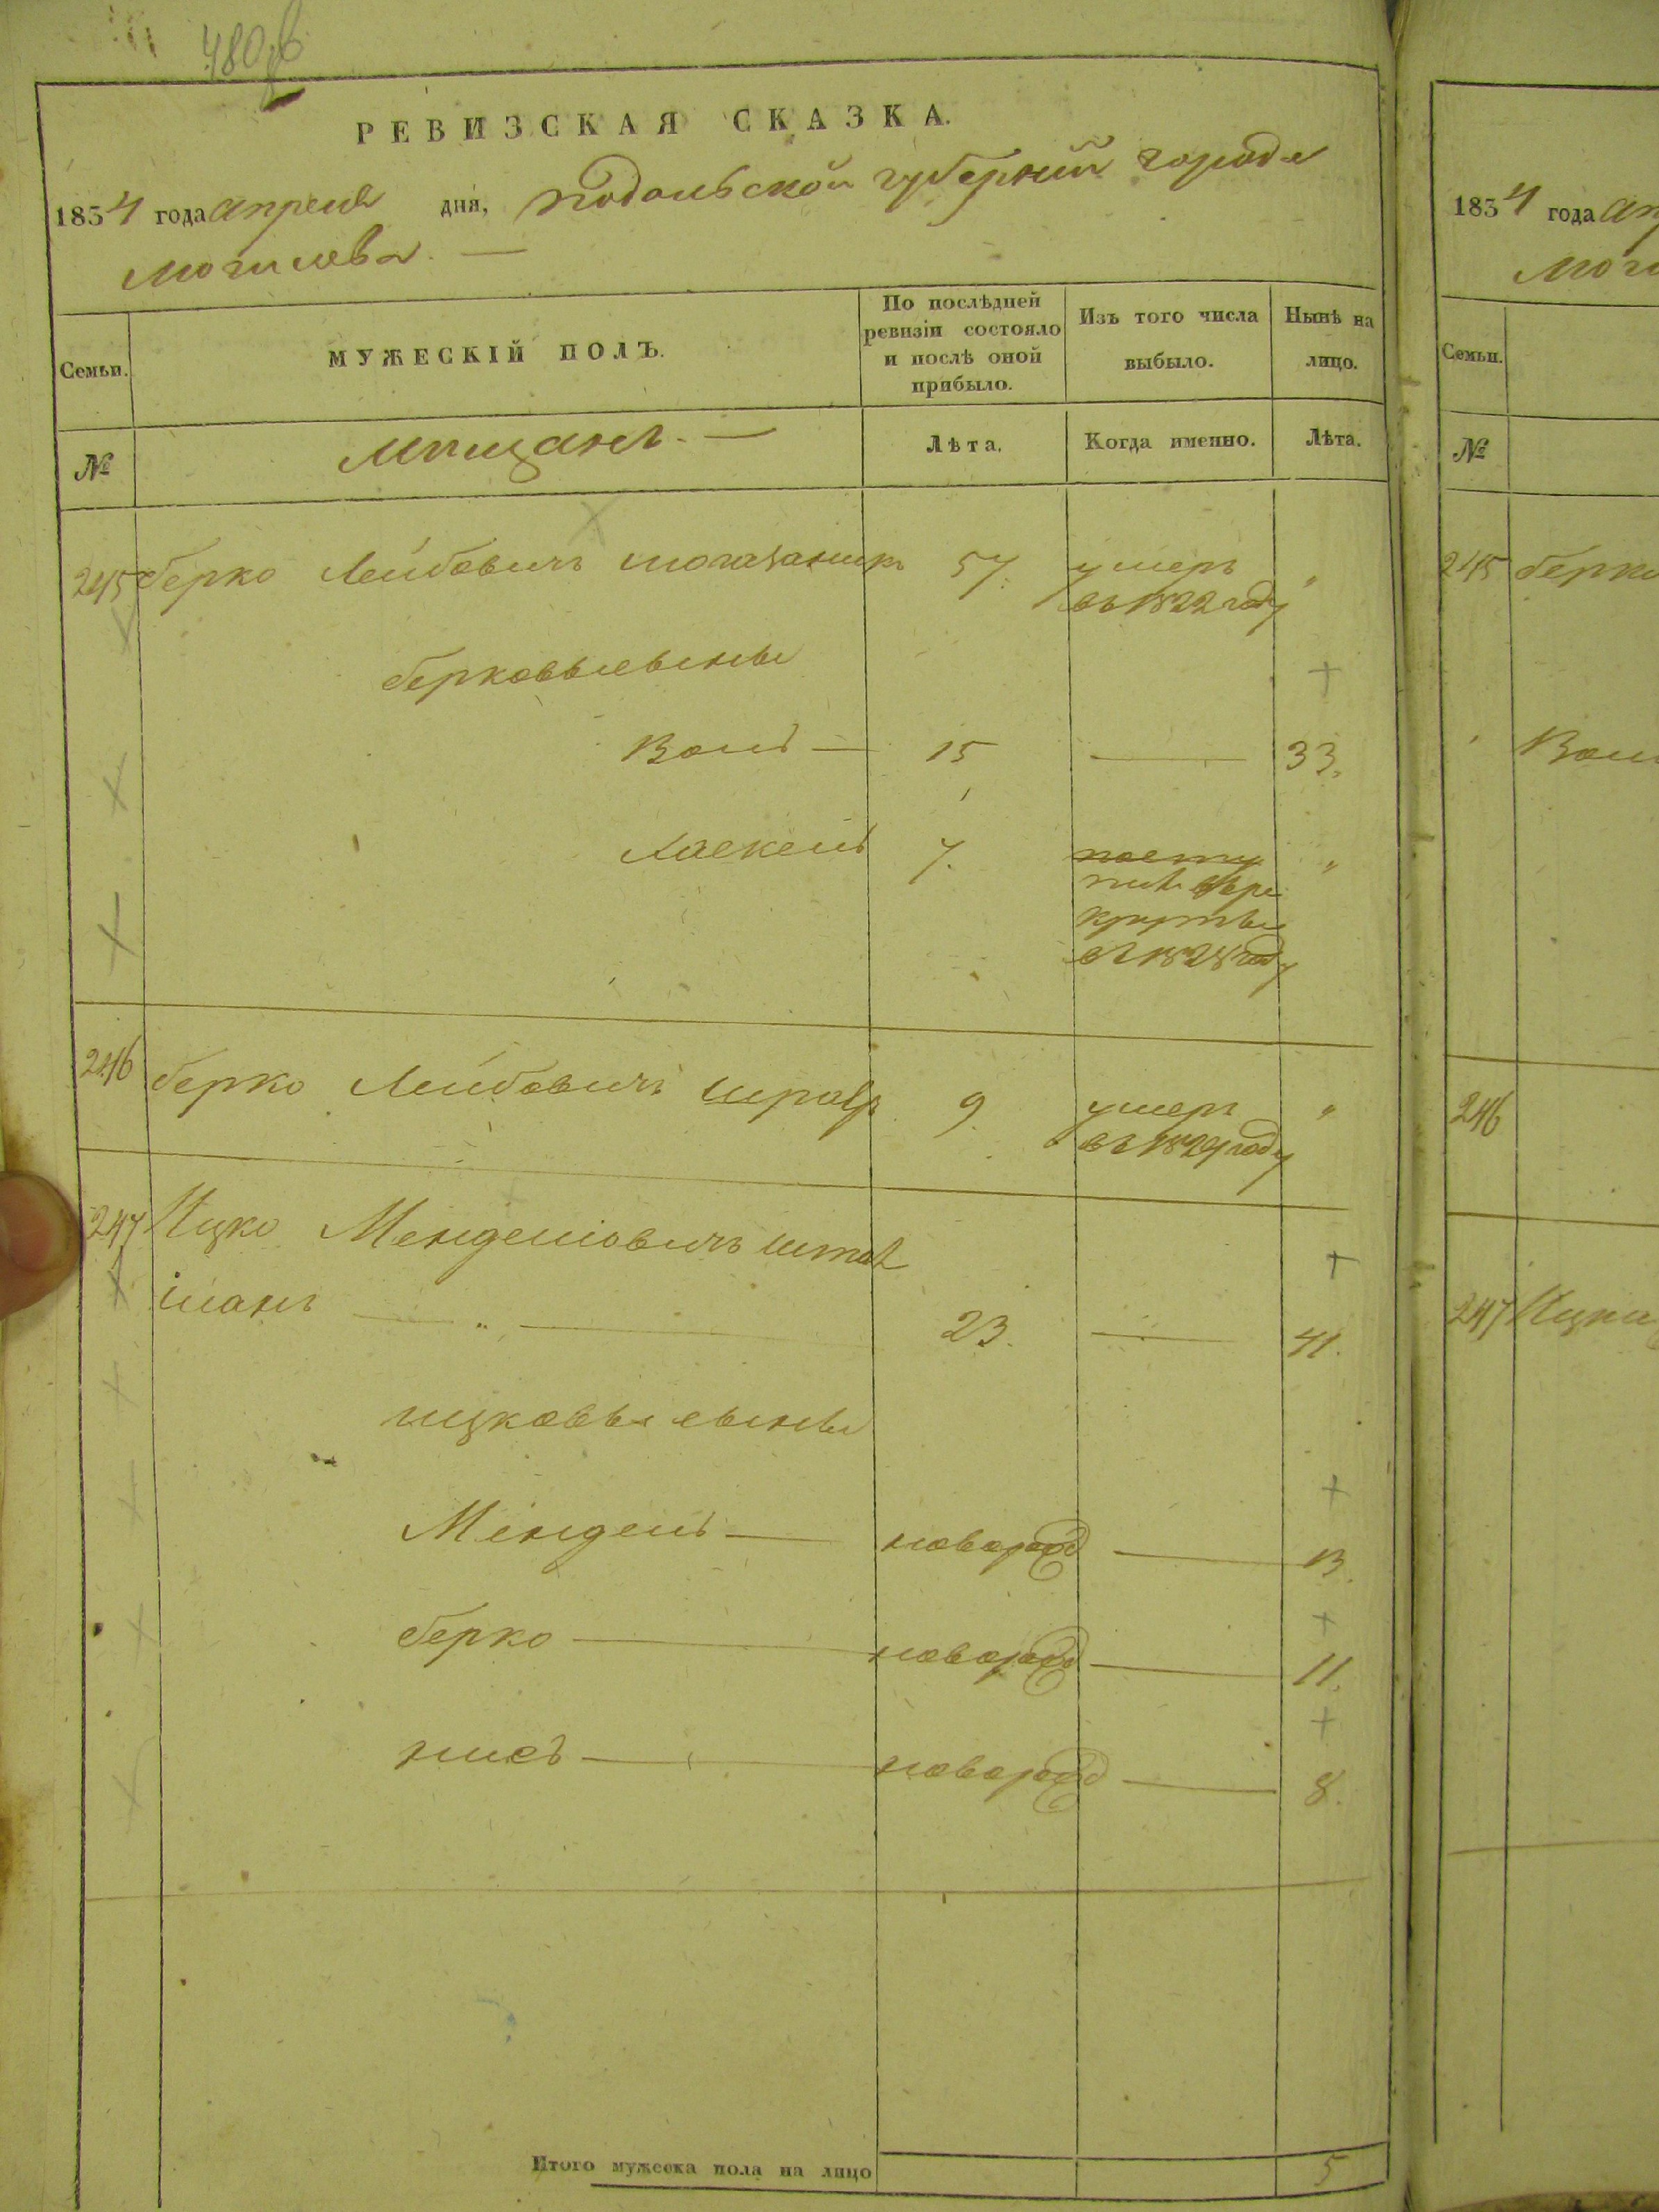 480 об
РЕВИЗСКАЯ СКАЗКА.
1834 года апреля дня, Подольской губернии города
Могилева. —
Семьи. МУЖЕСКІЙ ПОЛЪ. По послѣдней ревизіи состояло и послѣ оной прибыло. Изъ того числа выбыло. Нынѣ на лицо.
№ Мѣщанъ. — Лѣта. Когда именно. Лѣта.
245 Берко Лейбовичъ 57. умеръ "
въ 1822 году
Берковы сыны
Волъ — 15 — 33.
Хаскель 7. "
рекруты
въ 1828 году
246 Берко Лейбовичъ 9. умеръ "
въ 1829 году
247 Ицко Менделіовичъ
23. — 41.
ицковы сыны
Мендель — новорожд — 13.
Берко — новорожд — 11.
нисъ — новорожд — 8.
Итого мужеска пола на лицо 5
1834 года ап
Моги
Семьи.
№
245 Берко
Вол
246
247 Ицки